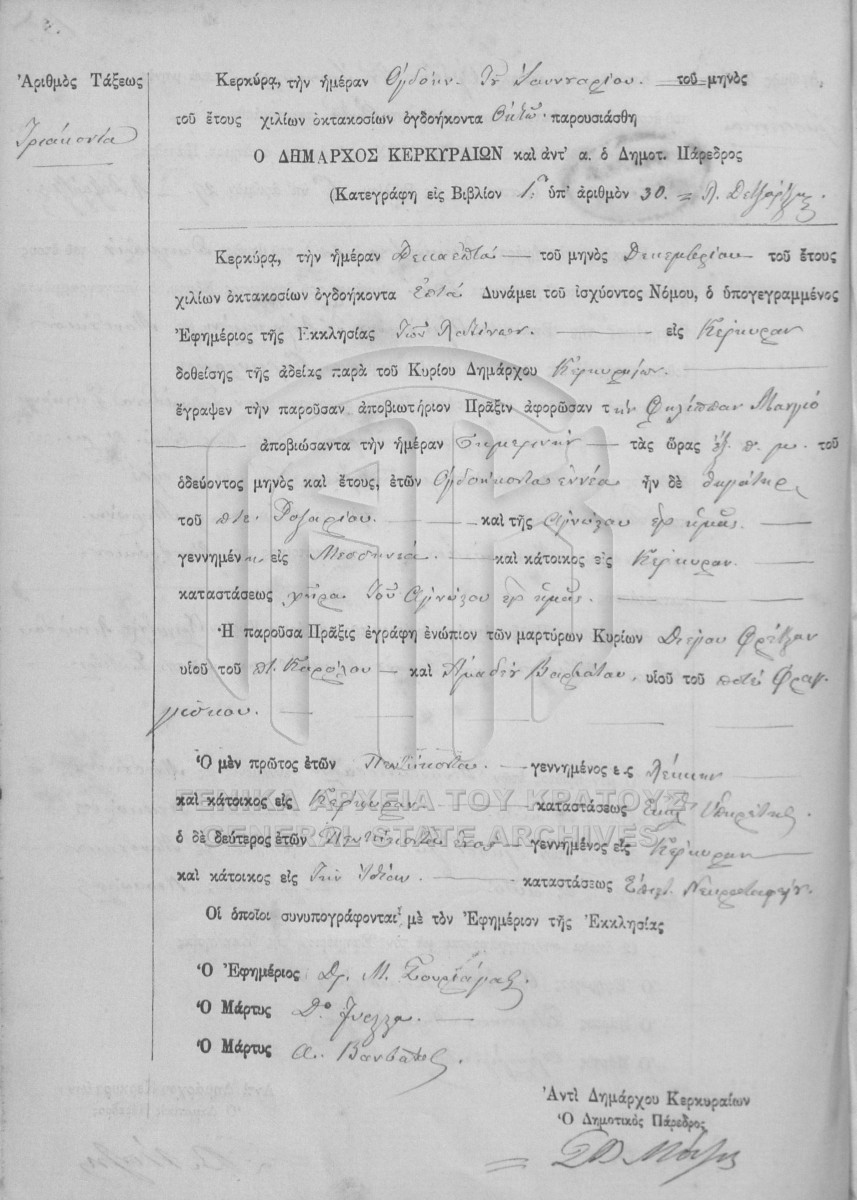 Ἀριθμὸς Τάξεως
Τριάκοντα
Κερκύρα, τὴν ἡμέραν Ὀγδόην Ἰανουαρίου τοῦ μηνὸς
τοῦ ἔτους χιλίων ὀκτακοσίων ὀγδοήκοντα Ὀκτὼ παρουσιάσθη
Ο ΔΗΜΑΡΧΟΣ ΚΕΡΚΥΡΑΙΩΝ καὶ ἀντ' α. ὁ Δημοτ. Πάρεδρος
(Κατεγράφη εἰς Βιβλίον ὑπ' ἀριθμὸν 30.
Κερκύρα, τὴν ἡμέραν Δεκαεπτὰ τοῦ μηνὸς Δεκεμβρίου τοῦ ἔτους
χιλίων ὀκτακοσίων ὀγδοήκοντα Ἑπτὰ Δυνάμει τοῦ ἰσχύοντος Νόμου, ὁ ὑπογεγραμμένος
Ἐφημέριος τῆς Εκκλησίας τῶν Λατίνων εἰς Κέρκυραν
δοθείσης τῆς ἀδείας παρὰ τοῦ Κυρίου Δημάρχου Κερκυραίων
ἔγραψεν τὴν παροῦσαν ἀποβιωτήριον Πρᾶξιν ἀφορῶσαν τὴν Φιλίππαν
ἀποβιώσαντα τὴν ἡμέραν σημερινὴν τὰς ὥρας ἓξ π. μ. τοῦ
ὁδεύοντος μηνὸς καὶ ἔτους, ἐτῶν Ὀγδοήκοντα ἐννέα ἦν δὲ θυγάτηρ
τοῦ ποτὲ Ροζαρίου καὶ τῆς ἀγνώστου ἐφ' ἡμᾶς
γεννημένη εἰς Μεσσηνία καὶ κάτοικος εἰς Κέρκυραν
καταστάσεως χήρα τοῦ ἀγνώστου ἐφ' ἡμᾶς
Ἡ παροῦσα Πρᾶξις ἐγράφη ἐνώπιον τῶν μαρτύρων Κυρίων
υἱοῦ τοῦ πτ. Καρόλου καὶ Ἀμαδέν υἱοῦ τοῦ ποτὲ Φραγ
γίσκου.
Ὁ μὲν πρῶτος ἐτῶν Πεντήκοντα γεννημένος ε ς
καὶ κάτοικος εἰς Κέρκυραν καταστάσεως Ὑπηρέτης
ὁ δὲ δεύτερος ἐτῶν Πεντήκοντα γεννημένος εἰς Κέρκυραν
καὶ κάτοικος εἰς τὴν ἰδίαν καταστάσεως
Οἱ ὁποῖοι συνυπογράφονται μὲ τὸν Ἐφημέριον τῆς Ἐκκλησίας
Ὁ Ἐφημέριος Δρ. Μ.
Ὁ Μάρτυς
Ὁ Μάρτυς Α.
Ἀντὶ Δημάρχου Κερκυραίων
Ὁ Δημοτικὸς Πάρεδρος
ΓΕΝΙΚΑ ΑΡΧΕΙΑ ΤΟΥ ΚΡΑΤΟΥΣ
GENERAL STATE ARCHIVES